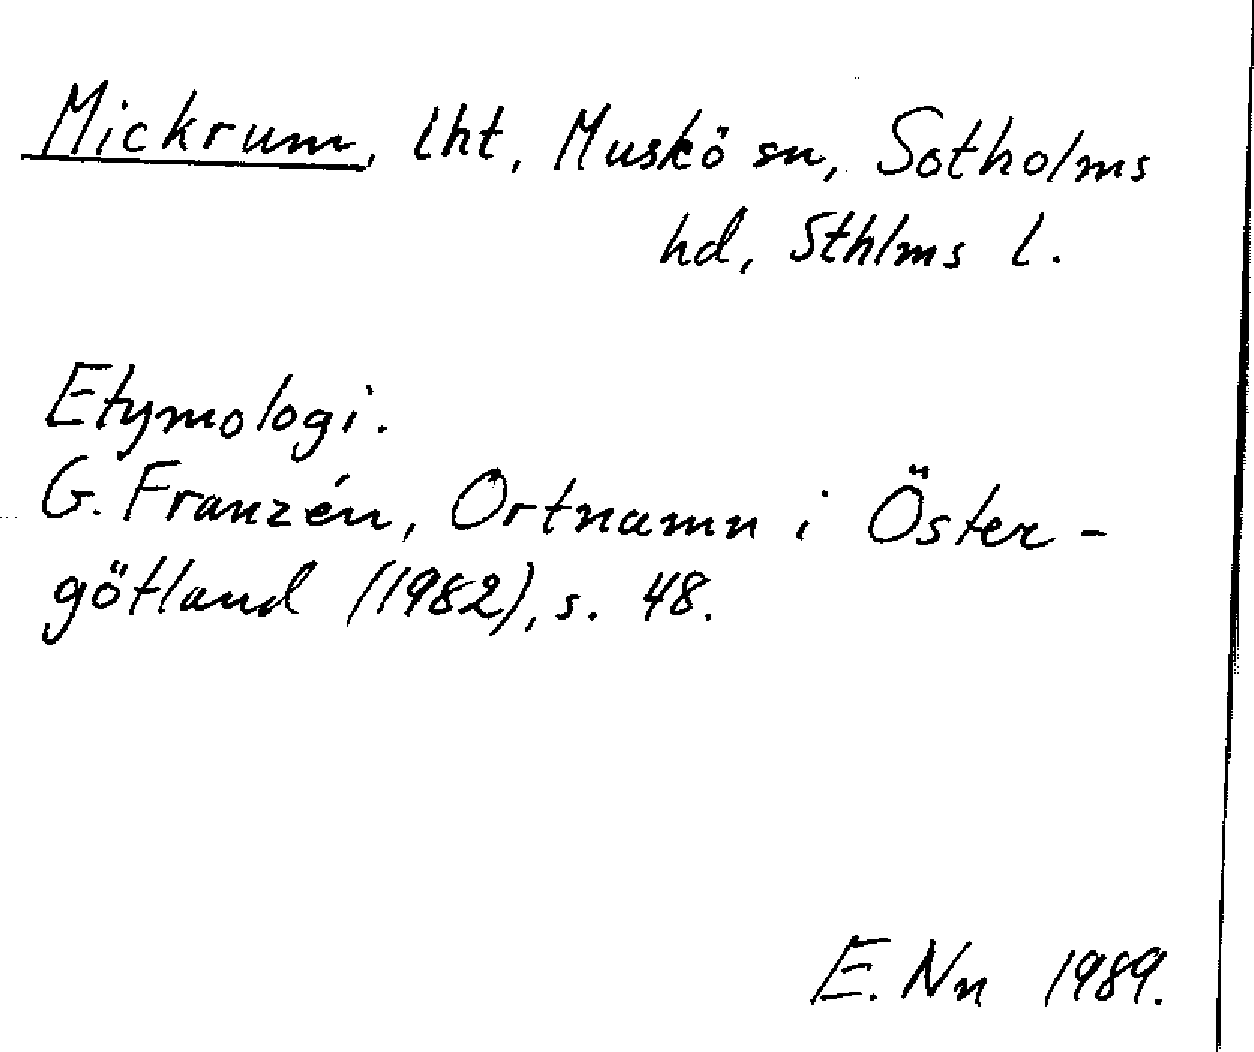 Mickrum, lht, Muskö sn, Sotholms
hd, Sthlms l.
Etymologi.
G. Franzén, Ortnamn i Öster-
götland (1982), s. 48.
E. Nn 1989.